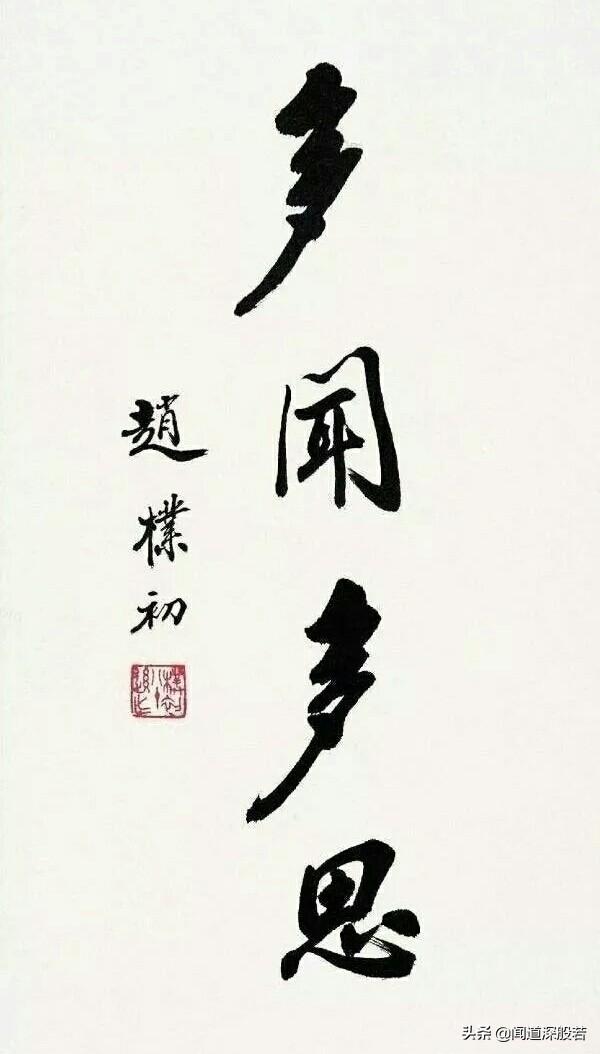 多聞多思
趙樸初
头条 @闻道深般若